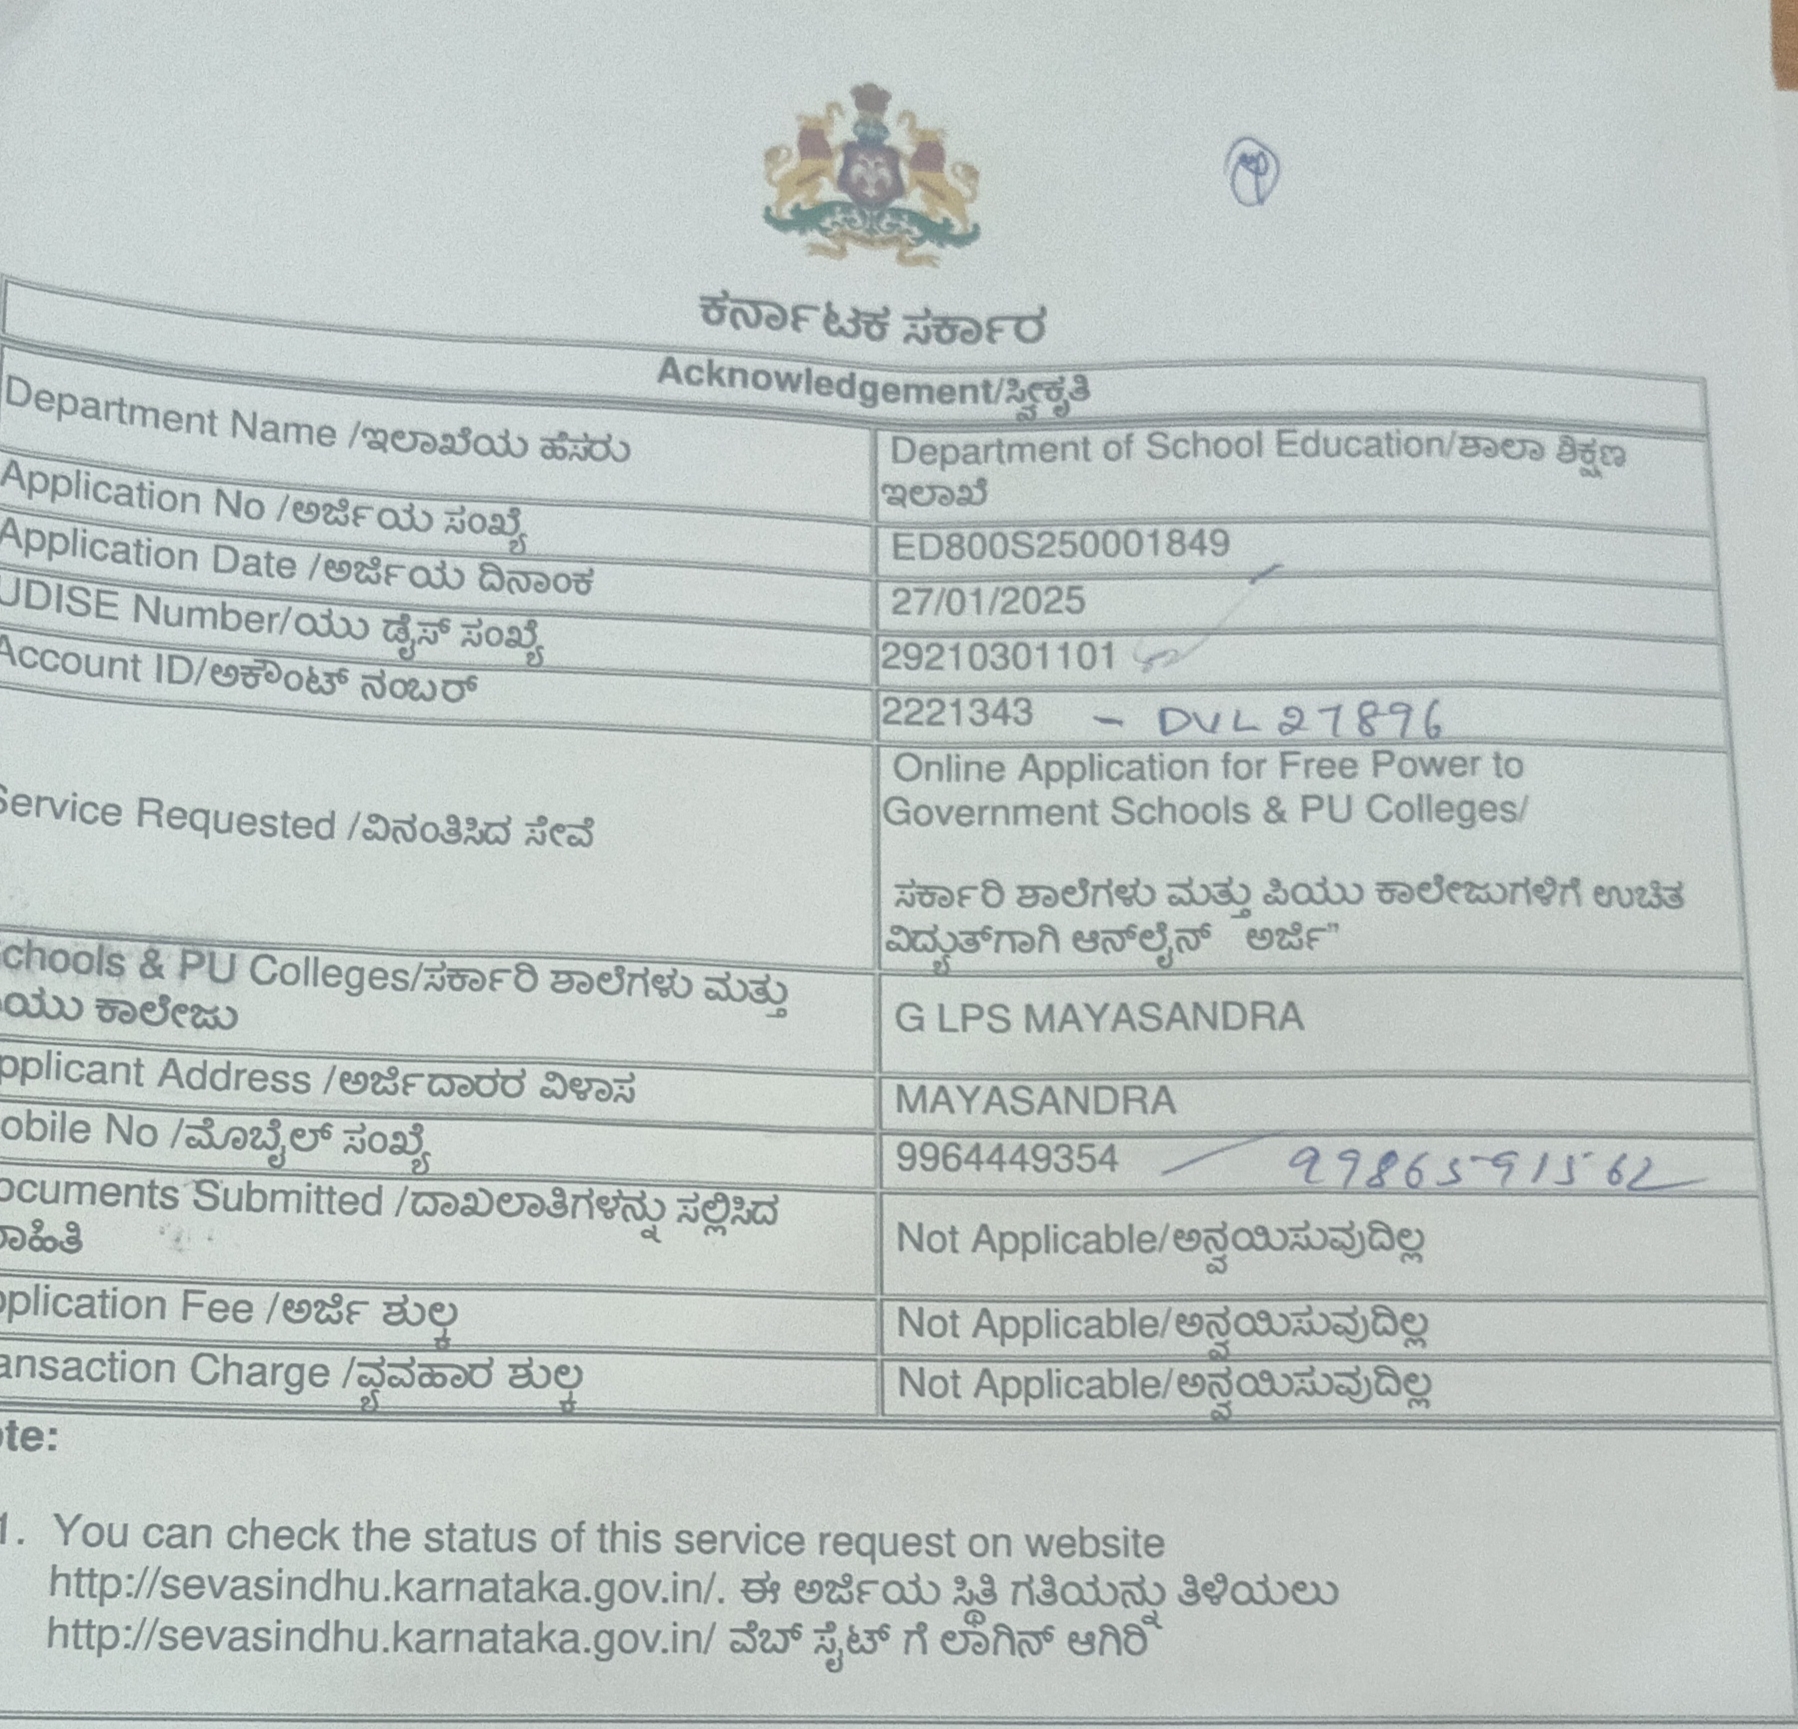 ಕರ್ನಾಟಕ ಸರ್ಕಾರ
Acknowledgement/ಸ್ವೀಕೃತಿ
Department Name /ಇಲಾಖೆಯ ಹೆಸರು
Department of School Education/ಶಾಲಾ ಶಿಕ್ಷಣ
ಇಲಾಖೆ
Application No /ಅರ್ಜಿಯ ಸಂಖ್ಯೆ
ED800S250001849
Application Date /ಅರ್ಜಿಯ ದಿನಾಂಕ
27/01/2025
UDISE Number/ಯು ಡೈಸ್ ಸಂಖ್ಯೆ
29210301101
Account ID/ಅಕೌಂಟ್ ನಂಬರ್
2221343 - DVL 27896
Service Requested /ವಿನಂತಿಸಿದ ಸೇವೆ
Online Application for Free Power to
Government Schools & PU Colleges/
ಸರ್ಕಾರಿ ಶಾಲೆಗಳು ಮತ್ತು ಪಿಯು ಕಾಲೇಜುಗಳಿಗೆ ಉಚಿತ
ವಿದ್ಯುತ್‌ಗಾಗಿ ಆನ್‌ಲೈನ್ ಅರ್ಜಿ"
chools & PU Colleges/ಸರ್ಕಾರಿ ಶಾಲೆಗಳು ಮತ್ತು
ಯು ಕಾಲೇಜು
G LPS MAYASANDRA
pplicant Address /ಅರ್ಜಿದಾರರ ವಿಳಾಸ
MAYASANDRA
obile No /ಮೊಬೈಲ್ ಸಂಖ್ಯೆ
9964449354 9986591562
ocuments Submitted /ದಾಖಲಾತಿಗಳನ್ನು ಸಲ್ಲಿಸಿದ
ಾಹಿತಿ
Not Applicable/ಅನ್ವಯಿಸುವುದಿಲ್ಲ
pplication Fee /ಅರ್ಜಿ ಶುಲ್ಕ
Not Applicable/ಅನ್ವಯಿಸುವುದಿಲ್ಲ
ansaction Charge /ವ್ಯವಹಾರ ಶುಲ್ಕ
Not Applicable/ಅನ್ವಯಿಸುವುದಿಲ್ಲ
ote:
1. You can check the status of this service request on website
http://sevasindhu.karnataka.gov.in/. ಈ ಅರ್ಜಿಯ ಸ್ಥಿತಿ ಗತಿಯನ್ನು ತಿಳಿಯಲು
http://sevasindhu.karnataka.gov.in/ ವೆಬ್ ಸೈಟ್ ಗೆ ಲಾಗಿನ್ ಆಗಿರಿ